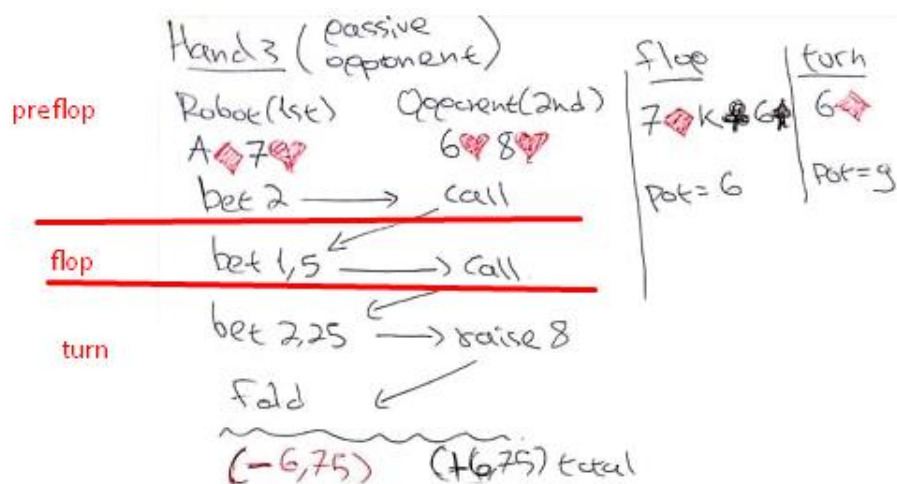 Hand 3 (passive opponent)
preflop
Robot(1st) Opponent(2nd)
A♦ 7♥ 6♥ 8♥
bet 2 → call
flop
bet 1,5 → call
turn
bet 2,25 → raise 8
fold
(-6,75) (+6,75) total
flop
7♦ K♣ 6♠
pot = 6
turn
6♦
pot = 9